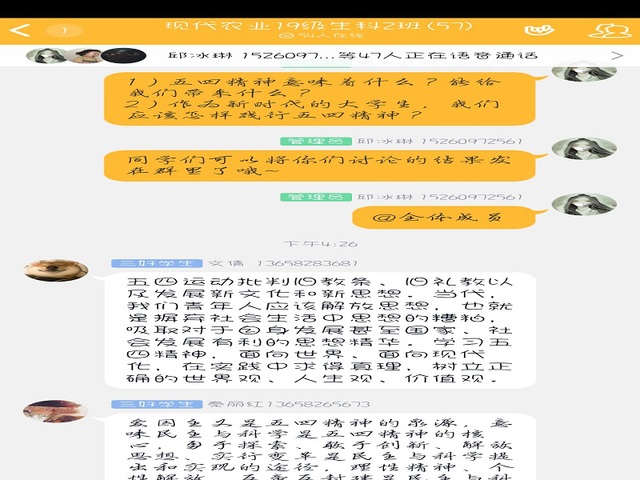 现代农业19级生科2班(57)
1
54人在线
邱冰琳 1526097...等47人正在语音通话
1）五四精神意味着什么？能给
我们带来什么？
2）作为新时代的大学生，我们
应该怎样践行五四精神？
管理员 邱冰琳 15260972561
同学们可以将你们讨论的结果发
在群里了哦~
管理员 邱冰琳 15260972561
@全体成员
下午4:26
三好学生 文倩 13658283681
五四运动批判旧教条、旧礼教以
及发展新文化和新思想，当代，
我们青年人应该解放思想，也就
是摒弃社会生活中思想的糟粕，
吸取对于自身发展甚至国家、社
会发展有利的思想精华，学习五
四精神，面向世界、面向现代
化，在实践中求得真理，树立正
确的世界观、人生观、价值观。
三好学生 秦丽红13658265673
爱国主义是五四精神的来源，意
味民主与科学是五四精神的核
心，勇于探索、敢于创新、解放
思想、实行变革是民主与科学提
出和实现的途径，理性精神、个